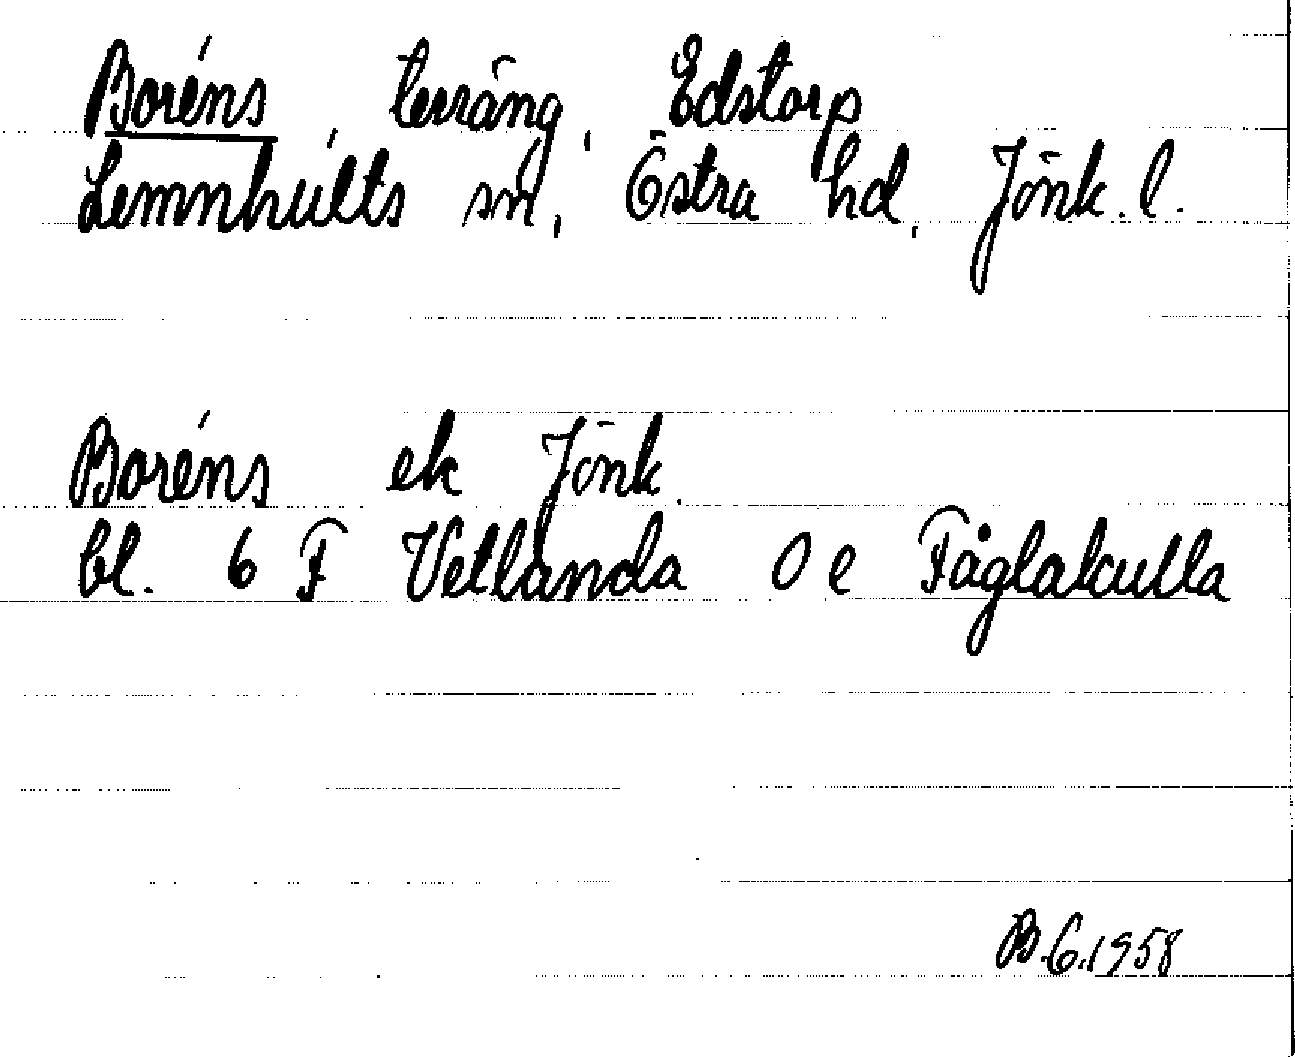 Boréns, terräng, Edstorp
Lemnhults sn, Östra hd, Jönk. l.
Boréns ek Jönk.
bl. 6 F Vetlanda 0 e Fåglakulla
B.G.1958